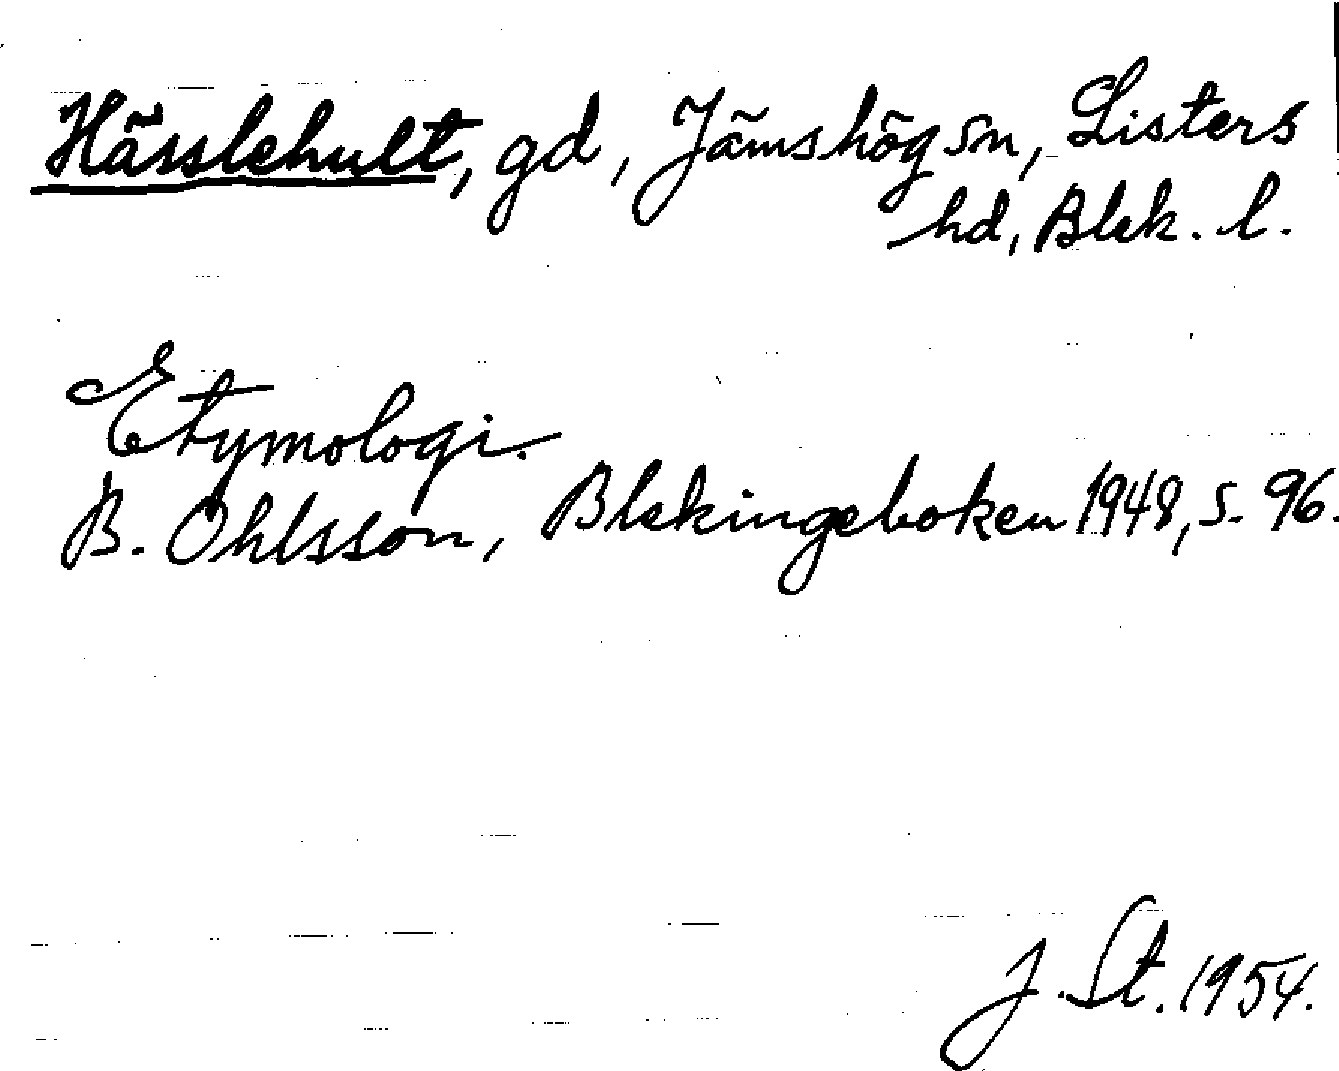 Hässlehult, gd, Jämshög sn, Listers
hd, Blek. l.
Etymologi.
B. Ohlsson, Blekingeboken 1948, s. 96.
J. St. 1954.